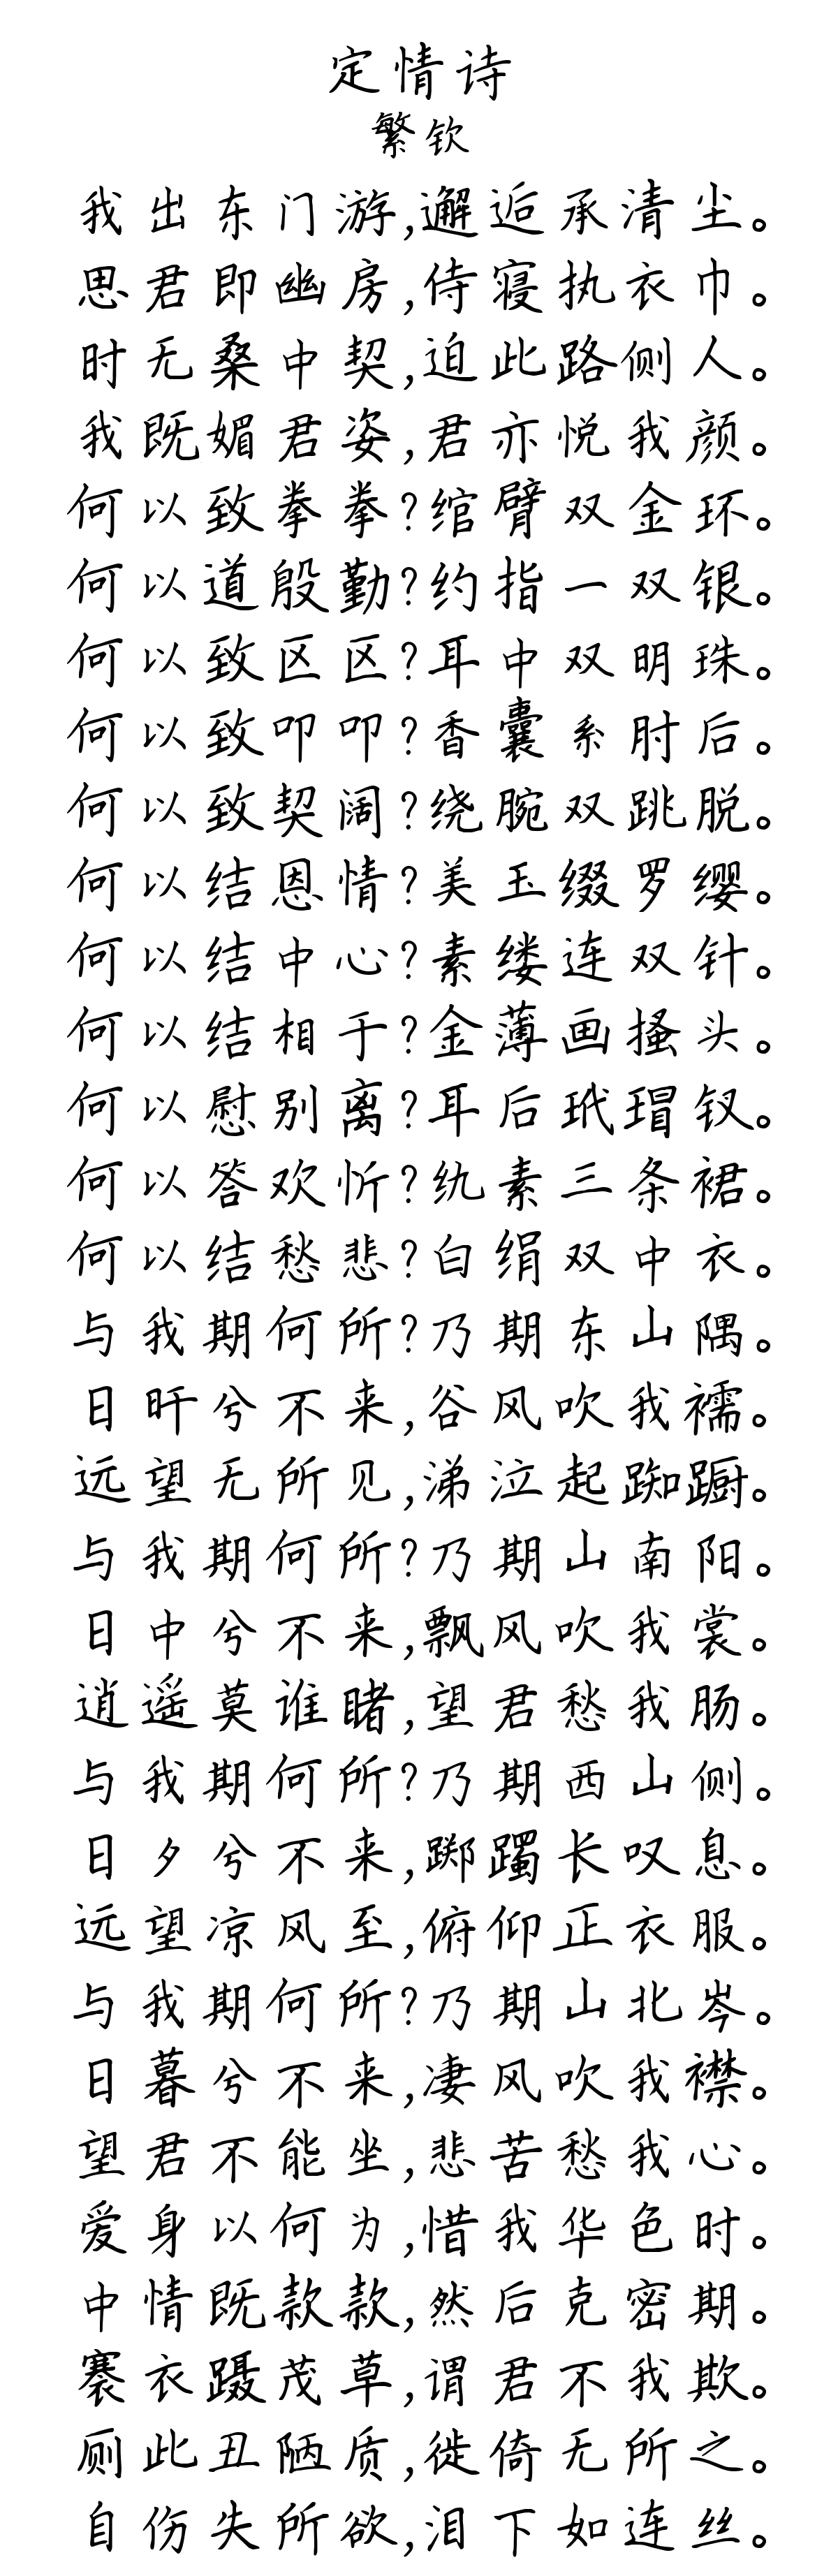 定情诗
繁钦
我出东门游,邂逅承清尘。
思君即幽房,侍寝执衣巾。
时无桑中契,迫此路侧人。
我既媚君姿,君亦悦我颜。
何以致拳拳?绾臂双金环。
何以道殷勤?约指一双银。
何以致区区?耳中双明珠。
何以致叩叩?香囊系肘后。
何以致契阔?绕腕双跳脱。
何以结恩情?美玉缀罗缨。
何以结中心?素缕连双针。
何以结相于?金薄画搔头。
何以慰别离?耳后玳瑁钗。
何以答欢忻?纨素三条裙。
何以结愁悲?白绢双中衣。
与我期何所?乃期东山隅。
日旰兮不来,谷风吹我襦。
远望无所见,涕泣起踟蹰。
与我期何所?乃期山南阳。
日中兮不来,飘风吹我裳。
逍遥莫谁睹,望君愁我肠。
与我期何所?乃期西山侧。
日夕兮不来,踯躅长叹息。
远望凉风至,俯仰正衣服。
与我期何所?乃期山北岑。
日暮兮不来,凄风吹我襟。
望君不能坐,悲苦愁我心。
爱身以何为,惜我华色时。
中情既款款,然后克密期。
褰衣蹑茂草,谓君不我欺。
厕此丑陋质,徙倚无所之。
自伤失所欲,泪下如连丝。